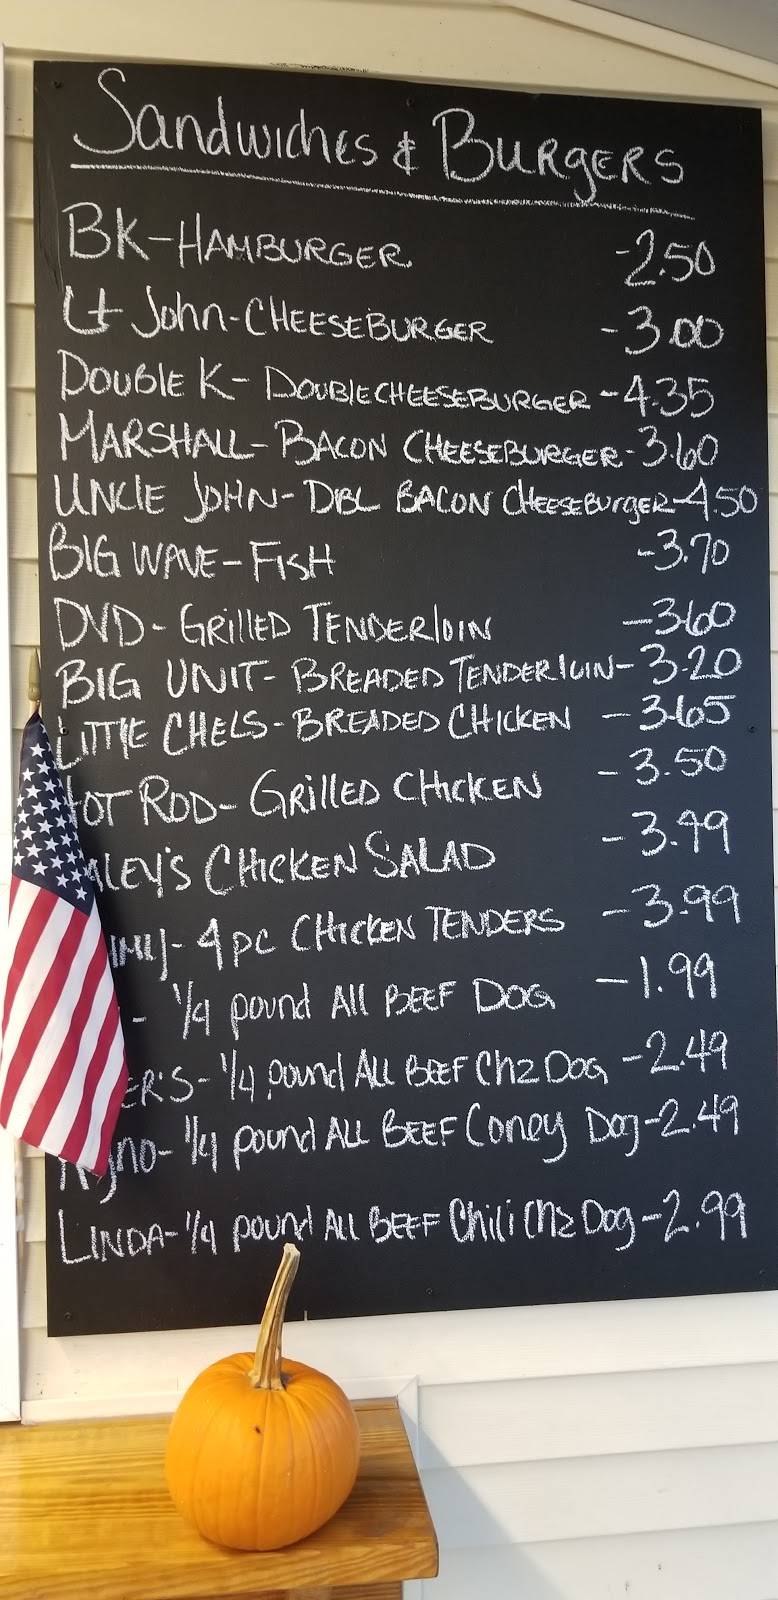 Sandwiches & Burgers
BK-HAMBURGER -2.50
Lt John-CHEESEBURGER -3.00
DOUBLE K- DOUBLECHEESEBURGER -4.35
MARSHALL-BACON CHEESEBURGER-3.60
UNCLE JOHN-DBL BACON CHEESEBURGER-4.50
BIG WAVE-FISH -3.70
DVD-GRILLED TENDERLOIN -3.60
BIG UNIT-BREADED TENDERLOIN-3.20
LITTLE CHELS-BREADED CHICKEN -3.65
HOT ROD-GRILLED CHICKEN -3.50
ALEY'S CHICKEN SALAD -3.99
- 4 pc CHICKEN TENDERS -3.99
- 1/4 pound All BEEF DOG -1.99
ER'S-1/4 pound ALL BEEF Chz DOG -2.49
1/4 pound ALL BEEF Coney Dog-2.49
LINDA-1/4 pound All BEEF Chili Chz Dog-2.99